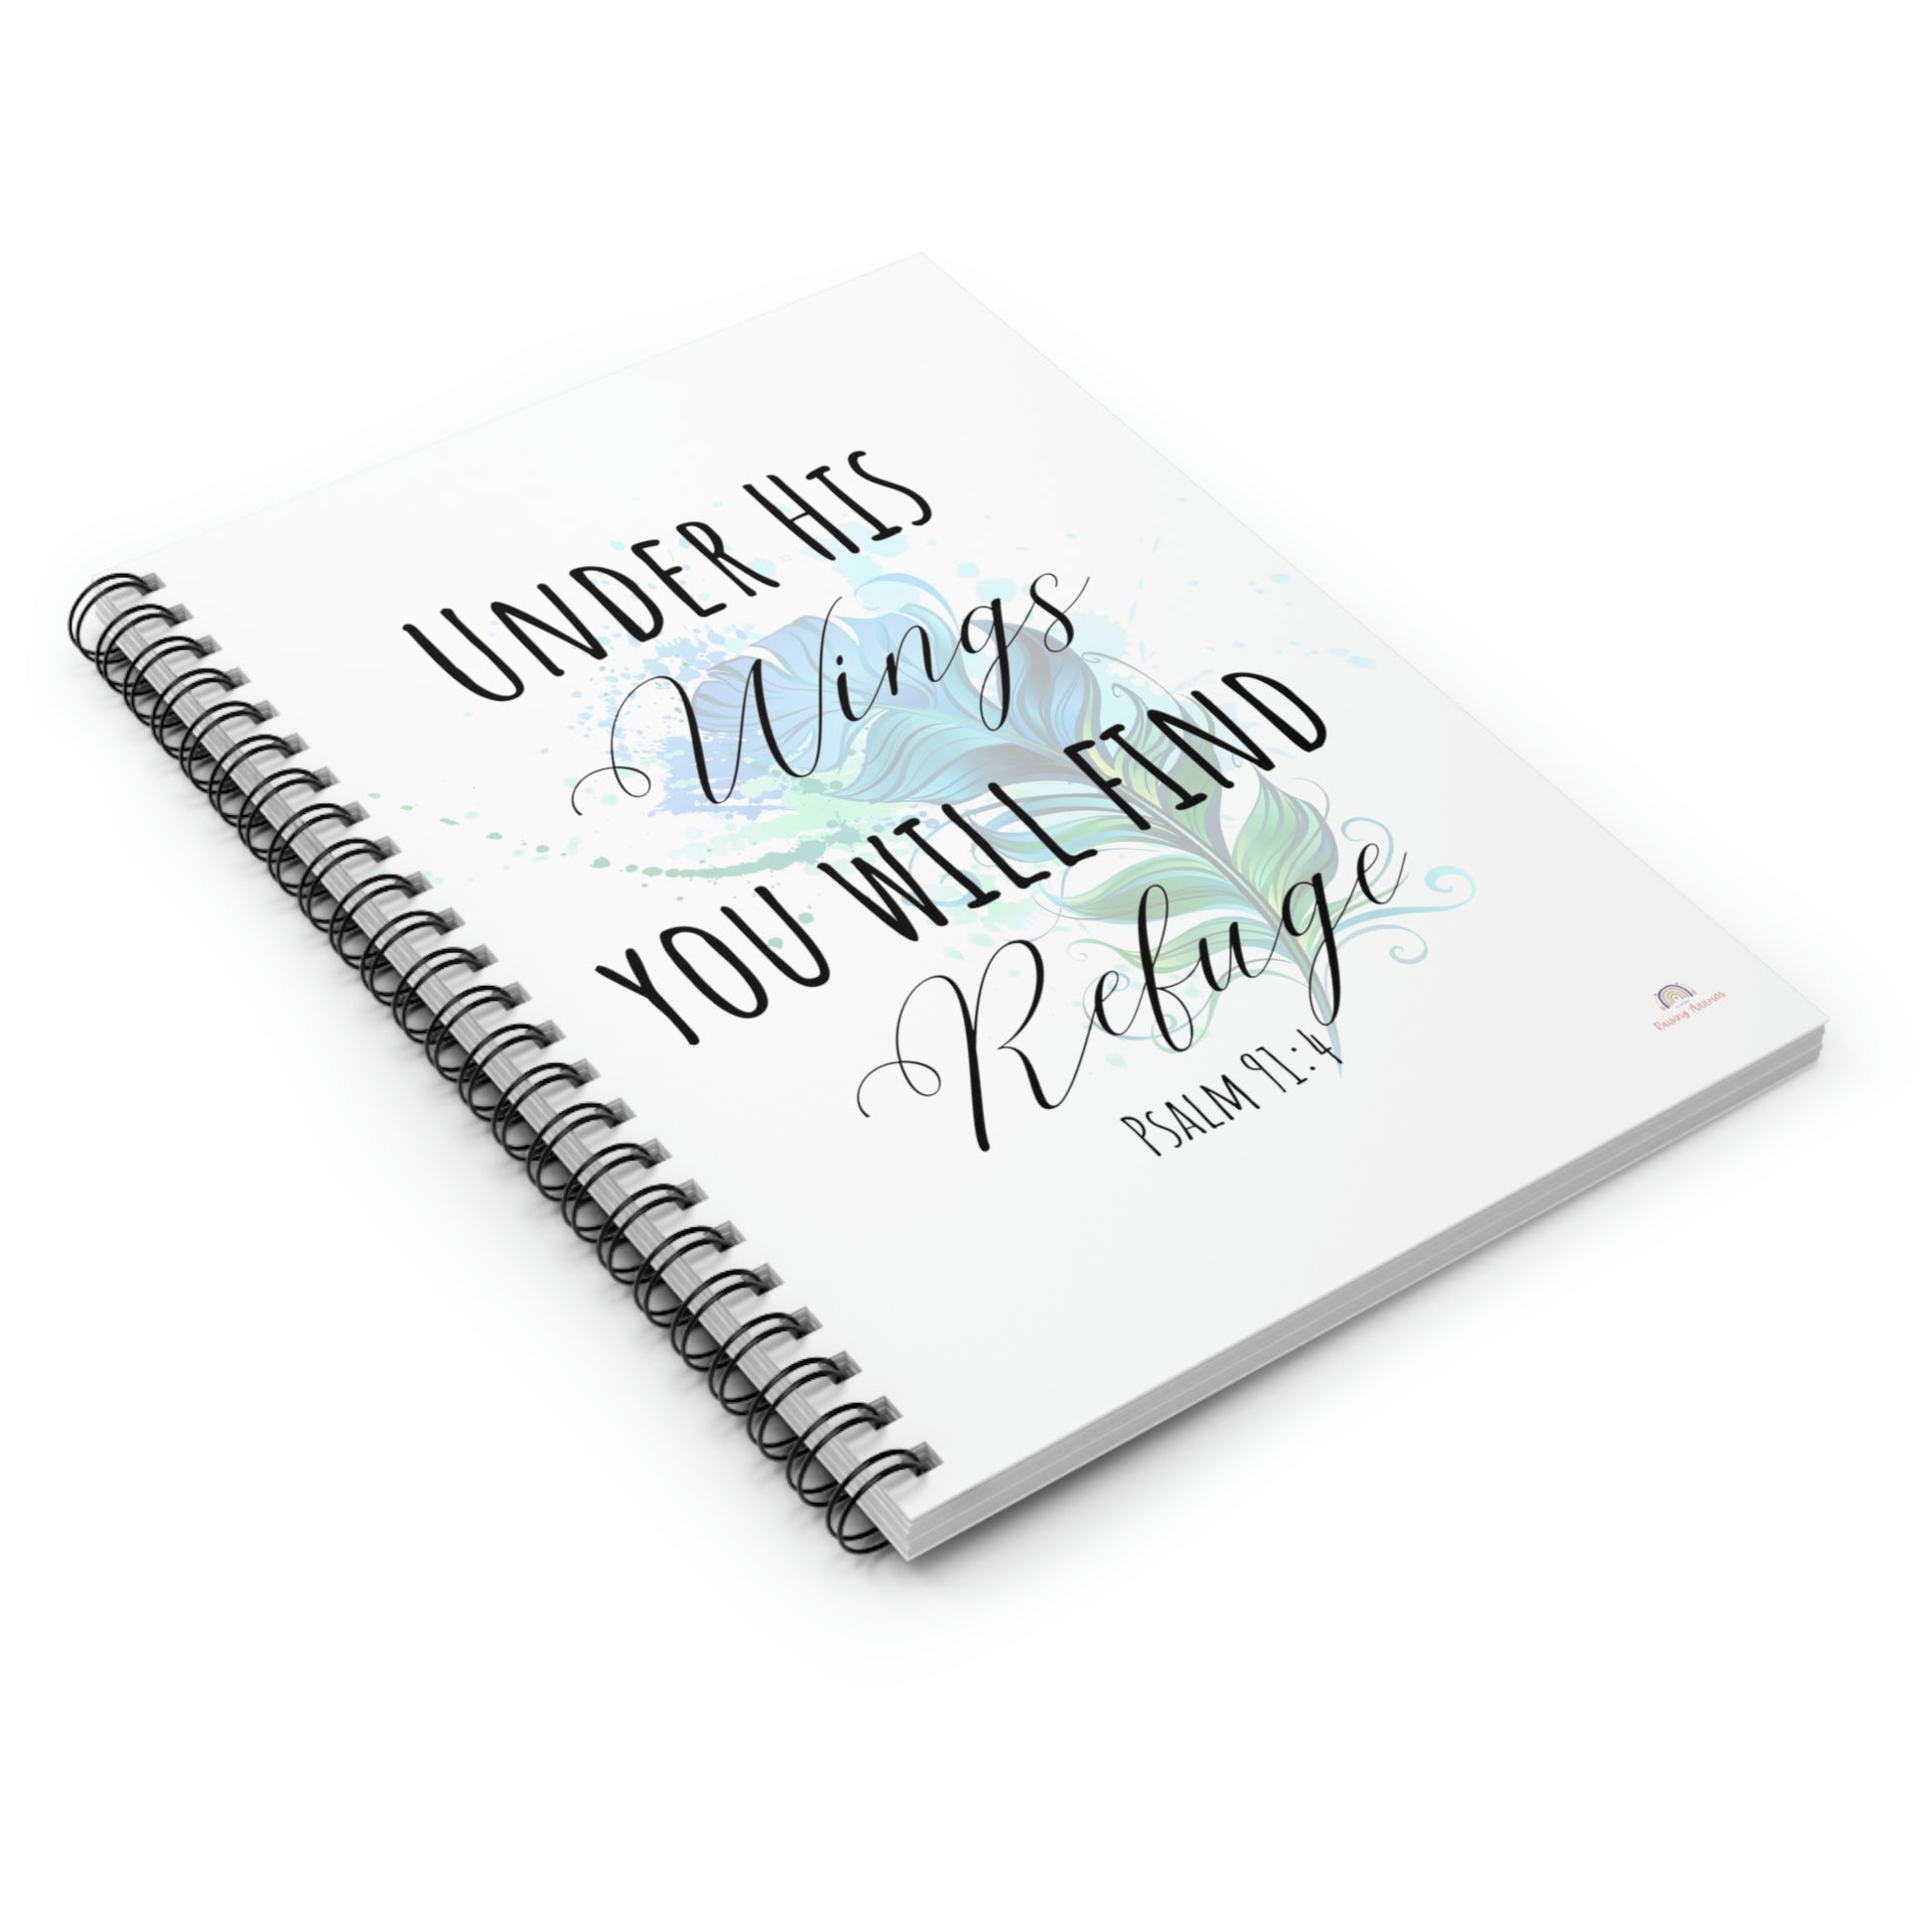 UNDER HIS
Wings
YOU WILL FIND
Refuge
PSALM 91:4
Raising Arrows